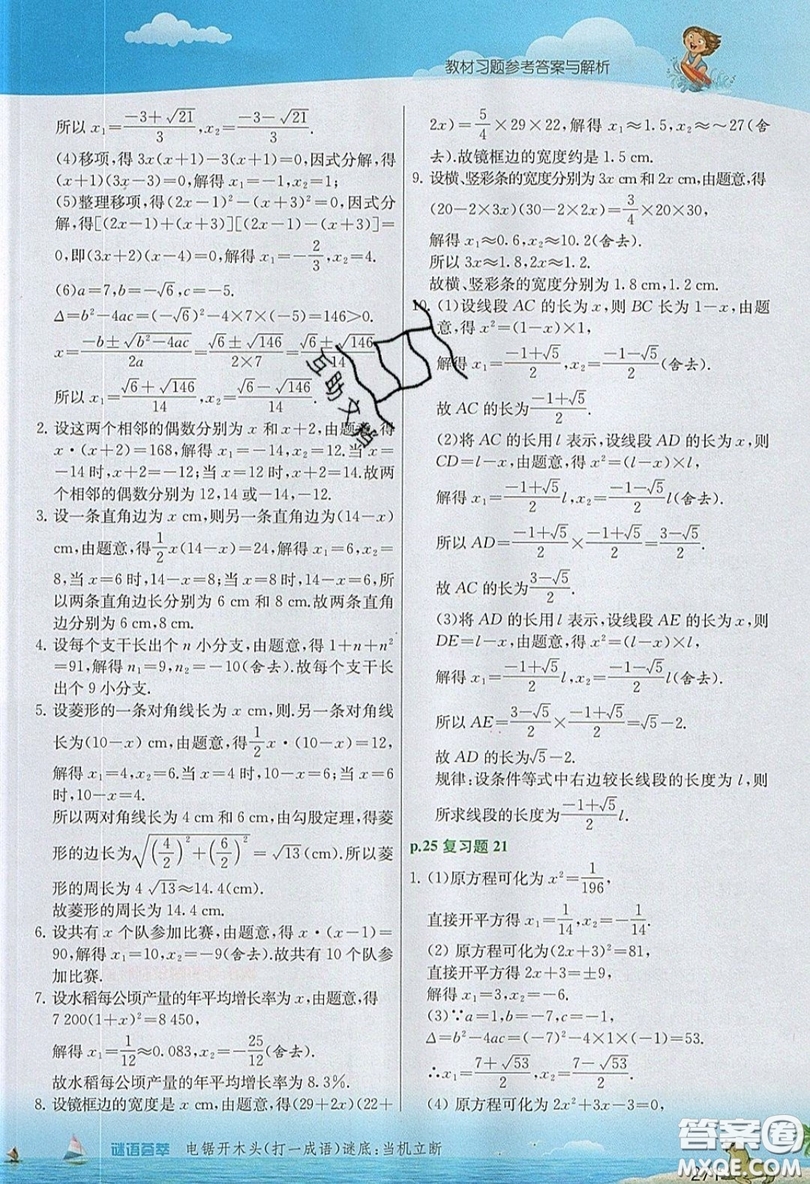 教材习题参考答案与解析
所以 x₁=(-3+√21)/3,x₂=(-3-√21)/3.
(4)移项,得 3x(x+1)-3(x+1)=0,因式分解,得
(x+1)(3x-3)=0,解得 x₁=-1,x₂=1;
(5)整理移项,得(2x-1)²-(x+3)²=0,因式分
解,得[(2x-1)+(x+3)][(2x-1)-(x+3)]=
0,即(3x+2)(x-4)=0,解得 x₁=-2/3,x₂=4.
(6)a=7,b=-√6,c=-5.
Δ=b²-4ac=(-√6)²-4×7×(-5)=146>0.
x=(-b±√(b²-4ac))/2a=(√6±√146)/(2×7)=(√6±√146)/14
所以 x₁=(√6+√146)/14,x₂=(√6-√146)/14.
2. 设这两个相邻的偶数分别为 x 和 x+2,由题意,得
x·(x+2)=168,解得 x₁=-14,x₂=12.当 x=
-14 时,x+2=-12;当 x=12 时,x+2=14.故两
个相邻的偶数分别为 12,14 或-14,-12.
3. 设一条直角边为 x cm,则另一条直角边为(14-x)
cm,由题意,得1/2x(14-x)=24,解得 x₁=6,x₂=
8,当 x=6 时,14-x=8;当 x=8 时,14-x=6,所
以两条直角边长分别为 6 cm 和 8 cm.故两条直角
边分别为 6 cm,8 cm.
4. 设每个支干长出个 n 小分支,由题意,得 1+n+n²
=91,解得 n₁=9,n₂=-10(舍去).故每个支干长
出个 9 小分支.
5. 设菱形的一条对角线长为 x cm,则.另一条对角线
长为(10-x) cm,由题意,得1/2x·(10-x)=12,
解得 x₁=4,x₂=6.当 x=4 时,10-x=6;当 x=6
时,10-x=4.
所以两对角线长为 4 cm 和 6 cm,由勾股定理,得菱
形的边长为√((4/2)²+(6/2)²)=√13(cm).所以菱
形的周长为 4√13≈14.4(cm).
故菱形的周长为 14.4 cm.
6. 设共有 x 个队参加比赛,由题意,得 x·(x-1)=
90,解得 x₁=10,x₂=-9(舍去).故共有 10 个队参
加比赛.
7. 设水稻每公顷产量的年平均增长率为 x,由题意,得
7 200(1+x)²=8 450,
解得 x₁=1/12≈0.083,x₂=-25/12(舍去).
故水稻每公顷产量的年平均增长率为 8.3%.
8. 设镜框边的宽度是 x cm,由题意,得(29+2x)(22+
2x)=5/4×29×22,解得 x₁≈1.5,x₂≈~27(舍
去).故镜框边的宽度约是 1.5 cm.
9. 设横、竖彩条的宽度分别为 3x cm 和 2x cm,由题意,得
(20-2×3x)(30-2×2x)=3/4×20×30,
解得 x₁≈0.6,x₂≈10.2(舍去).
所以 3x≈1.8,2x≈1.2.
故横、竖彩条的宽度分别为 1.8 cm,1.2 cm.
10. (1)设线段 AC 的长为 x,则 BC 长为 1-x,由题
意,得 x²=(1-x)×1,
解得 x₁=(-1+√5)/2,x₂=(-1-√5)/2(舍去).
故 AC 的长为(-1+√5)/2.
(2)将 AC 的长用 l 表示,设线段 AD 的长为 x,则
CD=l-x,由题意,得 x²=(l-x)×l,
解得 x₁=(-1+√5)/2l,x₂=(-1-√5)/2l(舍去).
所以 AD=(-1+√5)/2×(-1+√5)/2=(3-√5)/2.
故 AC 的长为(3-√5)/2.
(3)将 AC 的长用 l 表示,设线段 AE 的长为 x,则
DE=l-x,由题意,得 x²=(l-x)×l,
解得 x₁=(-1+√5)/2l,x₂=(-1-√5)/2l(舍去).
所以 AE=(3-√5)/2×(-1+√5)/2=√5-2.
故 AD 的长为√5-2.
规律:设条件等式中右边较长线段的长度为 l,则
所求线段的长度为(-1+√5)/2l.
p.25 复习题 21
1. (1)原方程可化为 x²=1/196,
直接开平方得 x₁=1/14,x₂=-1/14.
(2) 原方程可化为(2x+3)²=81,
直接开平方得 2x+3=±9,
解得 x₁=3,x₂=-6.
(3)∵a=1,b=-7,c=-1,
Δ=b²-4ac=(-7)²-4×1×(-1)=53.
∴x₁=(7+√53)/2,x₂=(7-√53)/2.
(4) 原方程可化为 2x²+3x-3=0,
互助文档
谜语荟萃 电锯开木头(打一成语)谜底:当机立断
答案圈